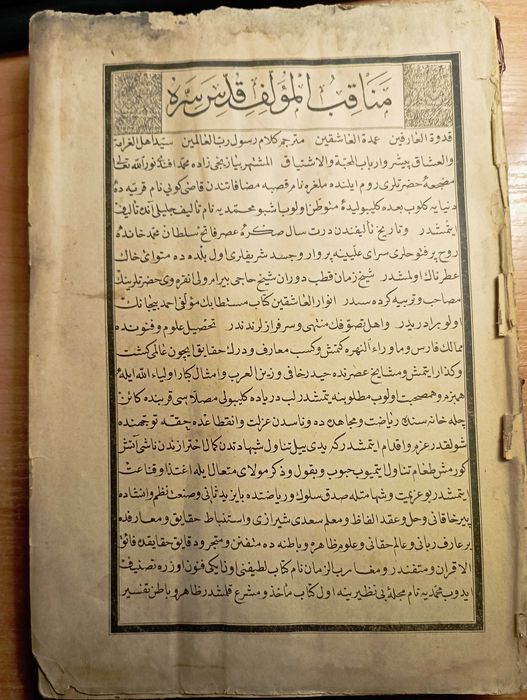 مناقب المؤلف قدس سره
قدوة العارفين عمدة العاشقين مترجم كلام رسول رب العالمين سيد اهل الغرابة
والعشاق پيشرو ارباب المحبة والاشتياق المشتهر بيازيجى زاده محمد افندى نور الله تعالى
مضجعه حضرتلرى روم ايلنده ملغره نام قصبه مضافاتندن قاضى كويى نام قريه ده
دنيايه كلوب بعده كليبوليده متوطن اولوب اشبو محمديه نام تأليف جليلى آنده تأليف
ايتمشدر وتاريخ تأليفندن درت سال صكره عصر فاتح سلطان محمد خانده
روح پرفتوحلرى سراى عليينه پرواز وجسد شريفلرى اول بلده ده متوارئ خاك
عطرناك اولمشدر شيخ زمان قطب دوران شيخ حاجى بيرام ولى انقره وى حضرتلرينك
مصاحب وتربيه كرده سيدر انوار العاشقين كتاب مستطابك مؤلفى احمد بيجانك
اولو برادريدر واهل تصوفك منتهى وسرفرازلرندندر تحصيل علوم وفنونده
ممالك فارس وماوراء النهره كتمش وكسب معارف ودرك حقايق ايچون عالمى كشت
وكذار ايتمش ومشايخ عصرنده حيدر خافى وزين العرب وامثال كبار اولياء الله ايله
همبزم وهمصحبت اولوب مطلوبنه يتمشدر لب درياده كليبولى مصلاسى قربنده كائن
چله خانه سنده رياضت ومجاهده ده وناسدن عزلت وانقطاعده حقه توجهنده
شولقدر عزم واقدام ايتمشدر كه يدى ييل تناول شهاداتدن كمال احترازندن ناشى آتش
كورمش طعام تناول ايتميوب حبوب وبقول وذكر مولاى متعال ايله اغتذا وقناعت
ايتمشدر بو عزيمت وشهامتله صدق سلوك ورياضتده بايزيد ثانى وصنعت نظم وانشاده
پير خاقانى وحل وعقد الفاظ ومعلم سعدى شيرازى واستنباط حقايق ومعارفده
بر عارف ربانى وعالم حقانى وعلوم ظاهره وباطنه ده متفنن ومتبحر ودقايق حقايقده فائق
الاقران ومتفندر ومغارب الزمان نام كتاب لطيفنى اون ايكى فنون اوزره تصنيف
ايدوب محمديه نام مجلۀ بى نظيرينه اول كتاب مأخذ ومشرع قلمشدر ظاهر وباطن تفسير